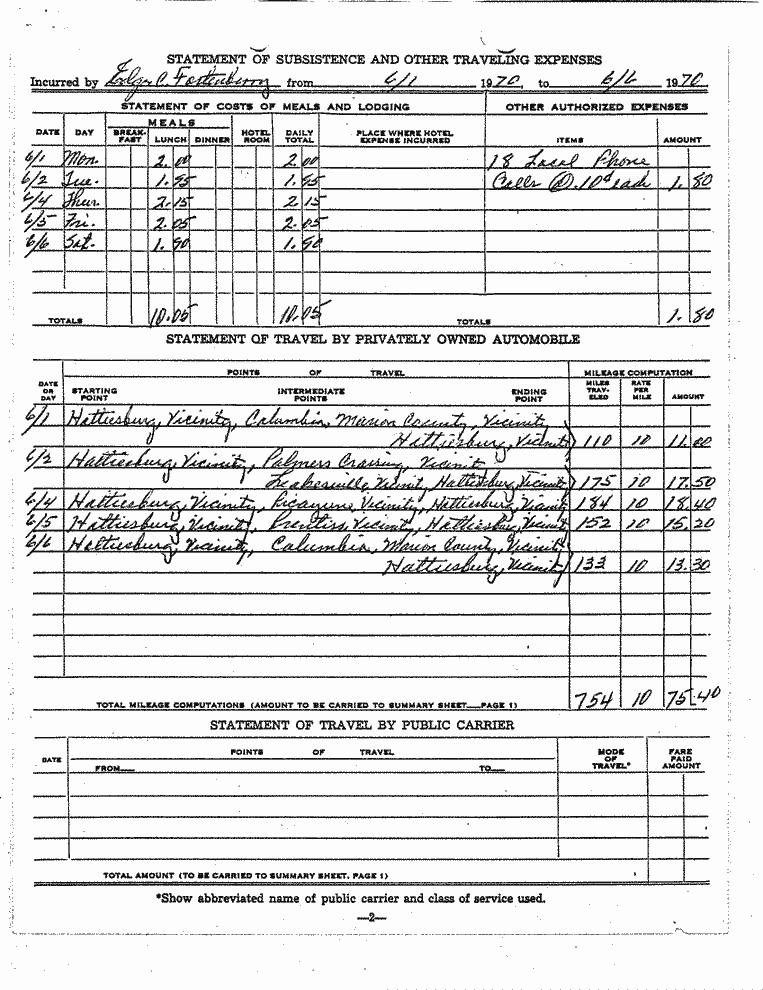 STATEMENT OF SUBSISTENCE AND OTHER TRAVELING EXPENSES
Incurred by Edgar C. Fortenberry from 6/1 1970, to 6/6 1970
STATEMENT OF COSTS OF MEALS AND LODGING OTHER AUTHORIZED EXPENSES
DATE DAY MEALS BREAK-FAST LUNCH DINNER HOTEL ROOM DAILY TOTAL PLACE WHERE HOTEL EXPENSE INCURRED ITEMS AMOUNT
6/1 Mon. 2.00 2.00 18 Local Phone
6/2 Tue. 1.95 1.95 Calls @ .10¢ each 1.80
6/4 Thur. 2.15 2.15
6/5 Fri. 2.05 2.05
6/6 Sat. 1.90 1.90
TOTALS 10.05 10.05 TOTALS 1.80
STATEMENT OF TRAVEL BY PRIVATELY OWNED AUTOMOBILE
POINTS OF TRAVEL MILEAGE COMPUTATION
DATE OR DAY STARTING POINT INTERMEDIATE POINTS ENDING POINT MILES TRAV-ELED RATE PER MILE AMOUNT
6/1 Hattiesburg, Vicinity, Columbia, Marion County, Vicinity
Hattiesburg, Vicinity 110 10 11.00
6/2 Hattiesburg, Vicinity, Palmers Crossing, Vicinity
Leakesville, Vicinity, Hattiesburg, Vicinity 175 10 17.50
6/4 Hattiesburg, Vicinity, Picayune, Vicinity, Hattiesburg, Vicinity 184 10 18.40
6/5 Hattiesburg, Vicinity, Prentiss, Vicinity, Hattiesburg, Vicinity 152 10 15.20
6/6 Hattiesburg, Vicinity, Columbia, Marion County, Vicinity
Hattiesburg, Vicinity 133 10 13.30
TOTAL MILEAGE COMPUTATIONS (AMOUNT TO BE CARRIED TO SUMMARY SHEET—PAGE 1) 754 10 75.40
STATEMENT OF TRAVEL BY PUBLIC CARRIER
DATE POINTS OF TRAVEL MODE OF TRAVEL* FARE PAID AMOUNT
FROM— TO—
TOTAL AMOUNT (TO BE CARRIED TO SUMMARY SHEET, PAGE 1)
*Show abbreviated name of public carrier and class of service used.
—2—